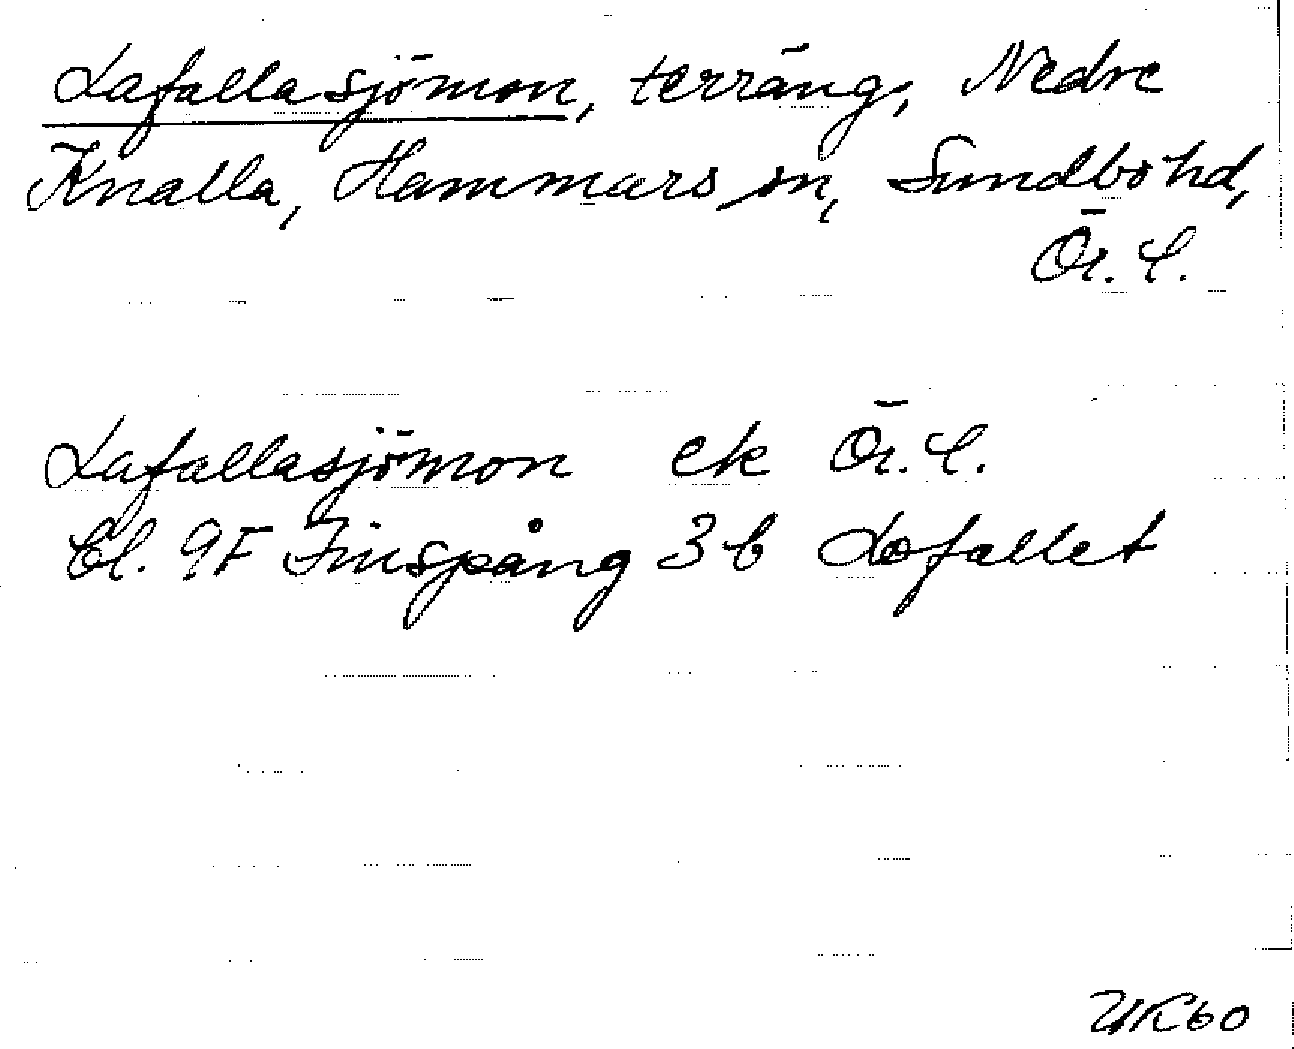 Lafallasjömon, terräng, Nedre
Knalla, Hammars sn, Sundbo hd,
Ör. l.
Lafallasjömon ek Ör. l.
bl. 9F Finspång 3b Lafallet
UR60